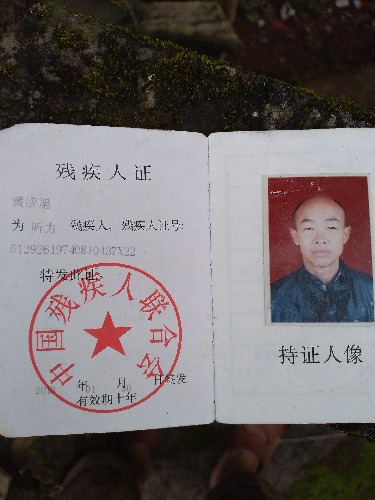 残疾人证
黄应旭
为 听力 残疾人，残疾人证号:
51292619740870437X22
特发此证。
中国残疾人联合会
年 01 月 日签发
有效期十年
持证人像